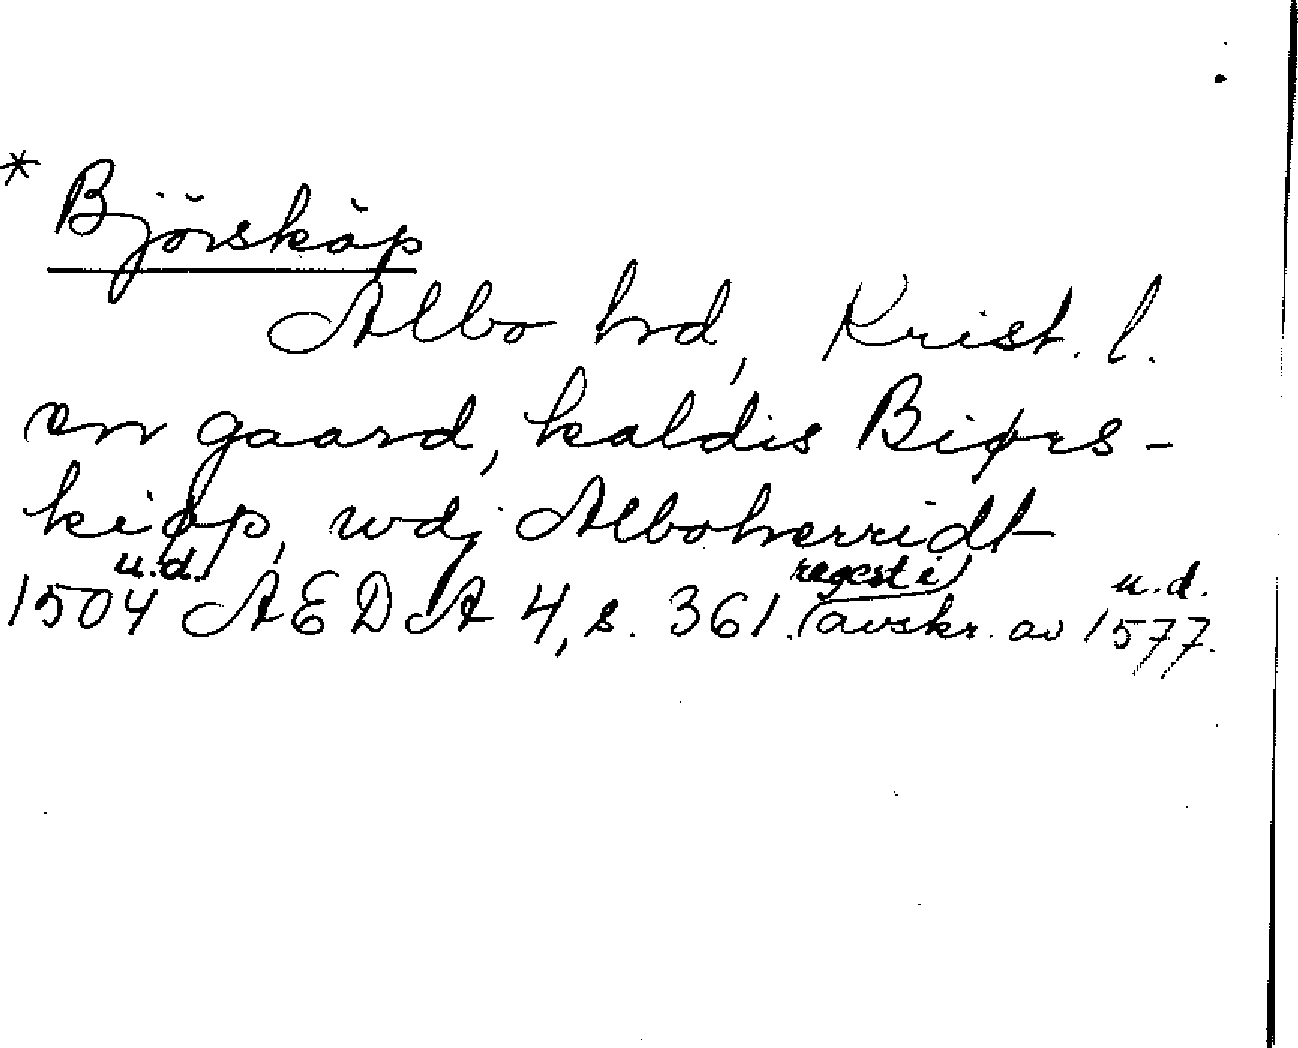 * Björsköp
Albo hd, Krist. l.
en gaard, kaldis Biørs-
kiøp, wdj Alboherridt
u.d. regest i u.d.
1504 AEDA 4, s. 361. (avskr. av 1577.